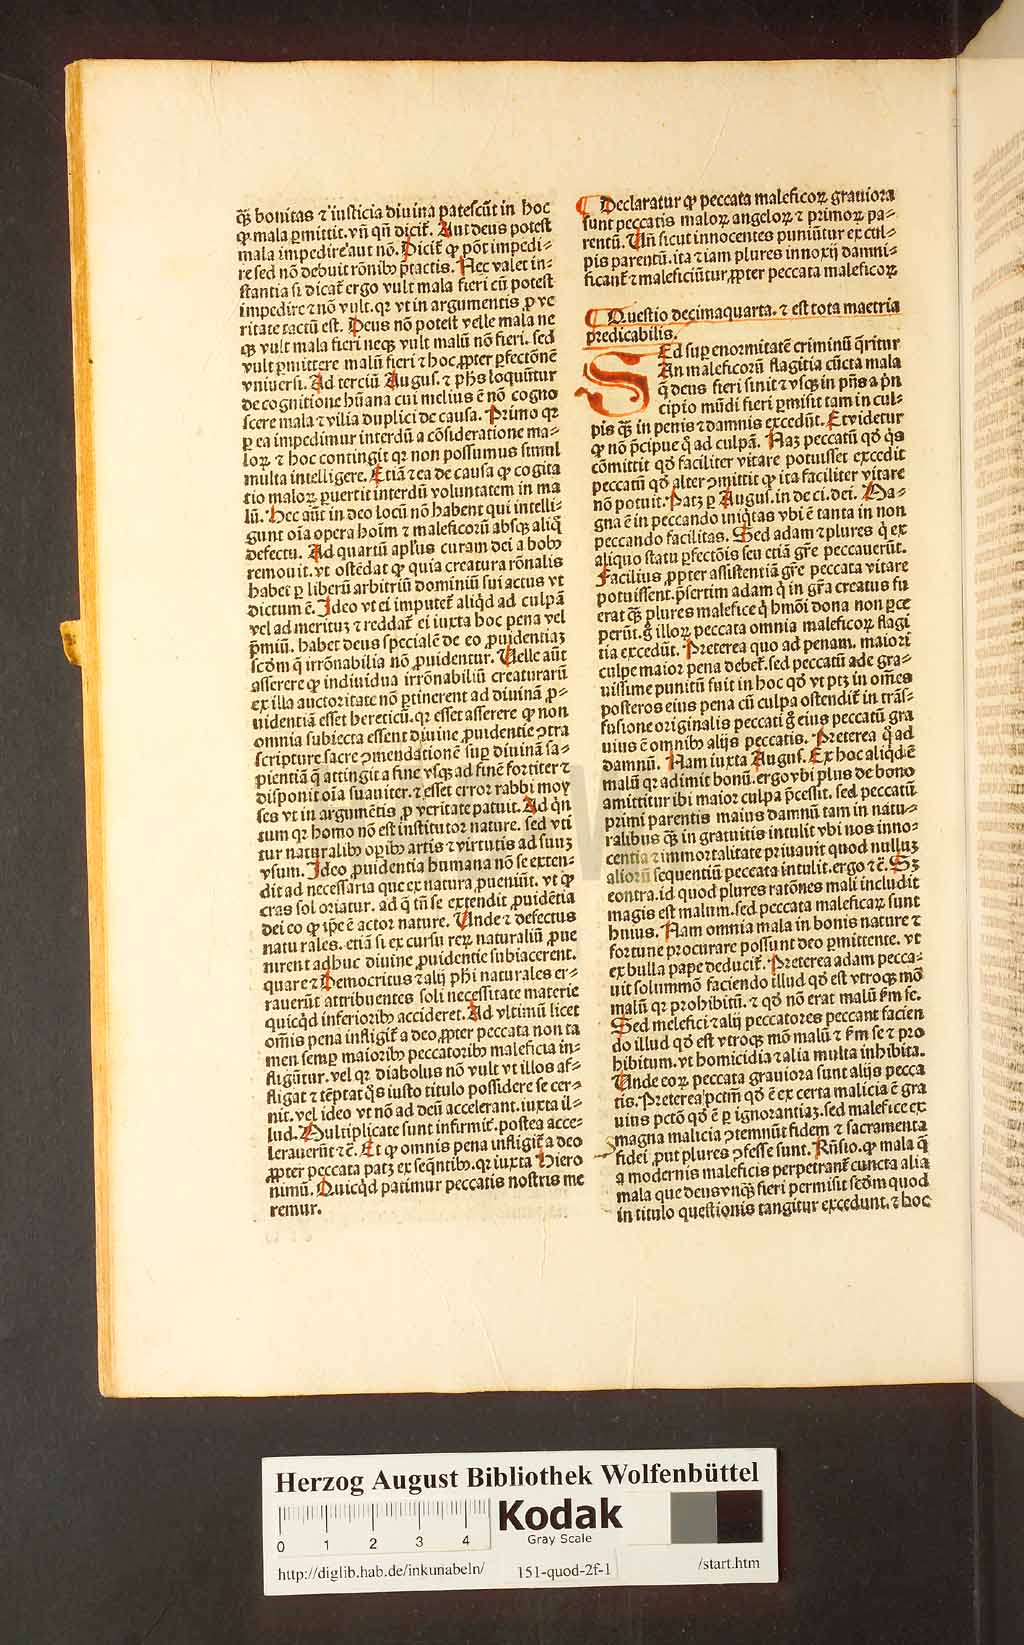 q̄ꝫ bonitas ⁊ iusticia diuina patescūt in hoc
ꝙ mala ꝑmittit. vn̄ qn̄ dicit᷑. Aut deus potest
mala impedire aut nō. Dicit᷑ ꝙ pōt impedi⸗
re sed nō debuit rōnibꝰ p̄tactis. Nec valet in⸗
stantia si dicat᷑ ergo vult mala fieri cū potest
impedire ⁊ nō vult. qꝛ vt in argumentis ꝓ ve
ritate tactū est. Deus nō potest velle mala ne
qꝫ vult mala fieri neqꝫ vult malū nō fieri. sed
vult ꝑmittere malū fieri ⁊ hoc ꝓpter ꝑfectōnē
vniuersi. Ad terciū Augus. ⁊ ph̄s loquūtur
de cognitione hūana cui melius ē nō cogno
scere mala ⁊ vilia duplici de causa. Primo qꝛ
ꝑ ea impedimur interdū a cōsideratione ma⸗
loꝝ ⁊ hoc contingit qꝛ non possumus simul
multa intelligere. Etiā ⁊ ea de causa ꝙ cogita
tio maloꝝ ꝑuertit interdū voluntatem in ma
lū. Hec aūt in deo locū nō habent qui intelli⸗
gunt oīa opera hoīm ⁊ maleficorū absqꝫ aliq̄
defectu. Ad quartū apl̄us curam dei a bobꝰ
remouit. vt ostēdat ꝙ quia creatura rōnalis
habet ꝑ liberū arbitriū dominiū sui actus vt
dictum ē. Ideo vt ei imputet᷑ aliqͥd ad culpā
vel ad meritū ⁊ reddat᷑ ei iuxta hoc pena vel
p̄miū. habet deus specialē de eo ꝓuidentiaꝫ
scd̄m q̄ irrōnabilia nō ꝓuidentur. Velle aūt
asserere ꝙ indiuidua irrōnabiliū creaturarū
ex illa auctoritate nō ꝑtinerent ad diuinā ꝓ⸗
uidentiā esset hereticū. qꝛ esset asserere ꝙ non
omnia subiecta essent diuine ꝓuidentie ꝯtra
scripture sacre ꝯmendationē suꝑ diuinā sa⸗
pientiā q̄ attingit a fine vsqꝫ ad finē fortiter ⁊
disponit oīa suauiter. ⁊ esset error rabbi moy
ses vt in argumētis ꝓ veritate patuit. Ad qͥn
tum qꝛ homo nō est institutor nature. sed vti
tur naturalibꝰ oꝑibꝰ artis ⁊ virtutis ad suuꝫ
vsum. Ideo ꝓuidentia humana nō se exten⸗
dit ad necessaria que ex natura ꝓueniūt. vt ꝙ
cras sol oriatur. ad q̄ tn̄ se extendit ꝓuidētia
dei eo ꝙ ip̄e ē actor nature. Unde ⁊ defectus
naturales. etiā si ex cursu reꝝ naturaliū ꝓue
nirent adhuc diuine ꝓuidentie subiacerent.
quare ⁊ Democritus ⁊ alij ph̄i naturales er⸗
rauerūt attribuentes soli necessitate materie
quicqͥd inferioribꝰ accideret. Ad vltimū licet
om̄is pena infligit᷑ a deo. ꝓpter peccata non ta
men semꝑ maioribꝰ peccatoribꝰ maleficia in⸗
fligūtur. vel qꝛ diabolus nō vult vt illos af⸗
fligat ⁊ tēptat qͦs iusto titulo possidere se cer⸗
nit. vel ideo vt nō ad deū accelerant. iuxta il⸗
lud. Multiplicate sunt infirmit᷑. postea acce⸗
lerauerūt ⁊ē. Et ꝙ omnis pena infligit᷑ a deo
ꝓpter peccata patꝫ ex seqn̄tibꝰ. qꝛ iuxta Hiero
nimū. Quicqͥd patimur peccatis nostris me
remur.
Declaratur ꝙ peccata maleficoꝝ grauiora
sunt peccatis maloꝝ angeloꝝ ⁊ primoꝝ pa⸗
rentū. Un̄ sicut innocentes puniūtur ex cul⸗
pis parentū. ita ⁊ iam plures innoxij damni⸗
ficant᷑ ⁊ maleficiūtur ꝓpter peccata maleficoꝝ
Questio decimaquarta. ⁊ est tota maetria
predicabilis.
SEd suꝑ enormitatē criminū q̄ritur
An maleficorū flagitia cūcta mala
q̄ deus fieri sinit ⁊ vsqꝫ in pn̄s a pͥn
cipio mūdi fieri ꝑmisit tam in cul⸗
pis q̄ꝫ in penis ⁊ damnis excedūt. Et videtur
ꝙ nō p̄cipue qͦ ad culpā. Naꝫ peccatū qd̄ qͥs
cōmittit qd̄ faciliter vitare potuisset excedit
peccatū qd̄ alter ꝯmittit ꝙ ita faciliter vitare
nō potuit. Patꝫ ꝑ Augus. in de ci. dei. Ma⸗
gna ē in peccando iniqͥtas vbi ē tanta in non
peccando facilitas. Sed adam ⁊ plures qͥ ex
aliquo statu ꝑfectōis seu etiā gr̄e peccauerūt.
Facilius ꝓpter assistentiā gr̄e peccata vitare
potuissent. p̄sertim adam qͥ in gr̄a creatus fu
erat q̄ꝫ plures malefice qͥ hm̄oi dona non ꝑce
perūt. gͦ illoꝝ peccata omnia maleficoꝝ flagi
tia excedūt. Preterea quo ad penam. maiori
culpe maior pena debet᷑. sed peccatū ade gra⸗
uissime punitū fuit in hoc qd̄ vt ptꝫ in om̄es
posteros eius pena cū culpa ostendit᷑ in trās⸗
fusione originalis peccati gͦ eius peccatū gra
uius ē omnibꝰ alijs peccatis. Preterea qͦ ad
damnū. Nam iuxta Augus. Ex hoc aliqͥd ē
malū qꝛ adimit bonū. ergo vbi plus de bono
amittitur ibi maior culpa p̄cessit. sed peccatū
primi parentis maius damnū tam in natu⸗
ralibus q̄ꝫ in gratuitis intulit vbi nos inno⸗
centia ⁊ immortalitate priuauit quod nulluꝫ
aliorū sequentiū peccata intulit. ergo ⁊ē. Sꝫ
eontra. id quod plures ratōnes mali includit
magis est malum. sed peccata maleficaꝝ sunt
huius. Nam omnia mala in bonis nature ⁊
fortune procurare possunt deo ꝑmittente. vt
ex bulla pape deducit᷑. Preterea adam pecca⸗
uit solummō faciendo illud qd̄ est vtroqꝫ mō
malū qꝛ prohibitū. ⁊ qd̄ nō erat malū ẜm se.
Sed melefici ⁊ alij peccatores peccant facien
do illud qd̄ est vtroqꝫ mō malū ⁊ ẜm se ⁊ pro
hibitum. vt homicidia ⁊ alia multa inhibita.
Unde eoꝝ peccata grauiora sunt alijs pecca
tis. Preterea pctm̄ qd̄ ē ex certa malicia ē gra
uius pctō qd̄ ē ꝑ ignorantiaꝫ. sed malefice ex
magna malicia ꝯtemnūt fidem ⁊ sacramenta
fidei ꝓut plures ꝯfesse sunt. Rn̄sio. ꝙ mala q̄
a modernis maleficis perpetrant᷑ cuncta alia
mala que deus vnqꝫ fieri permisit scd̄m quod
in titulo questionis tangitur excedunt. ⁊ hoc
Herzog August Bibliothek Wolfenbüttel
Kodak
Gray Scale
0 1 2 3 4
http://diglib.hab.de/inkunabeln/ 151-quod-2f-1 /start.htm